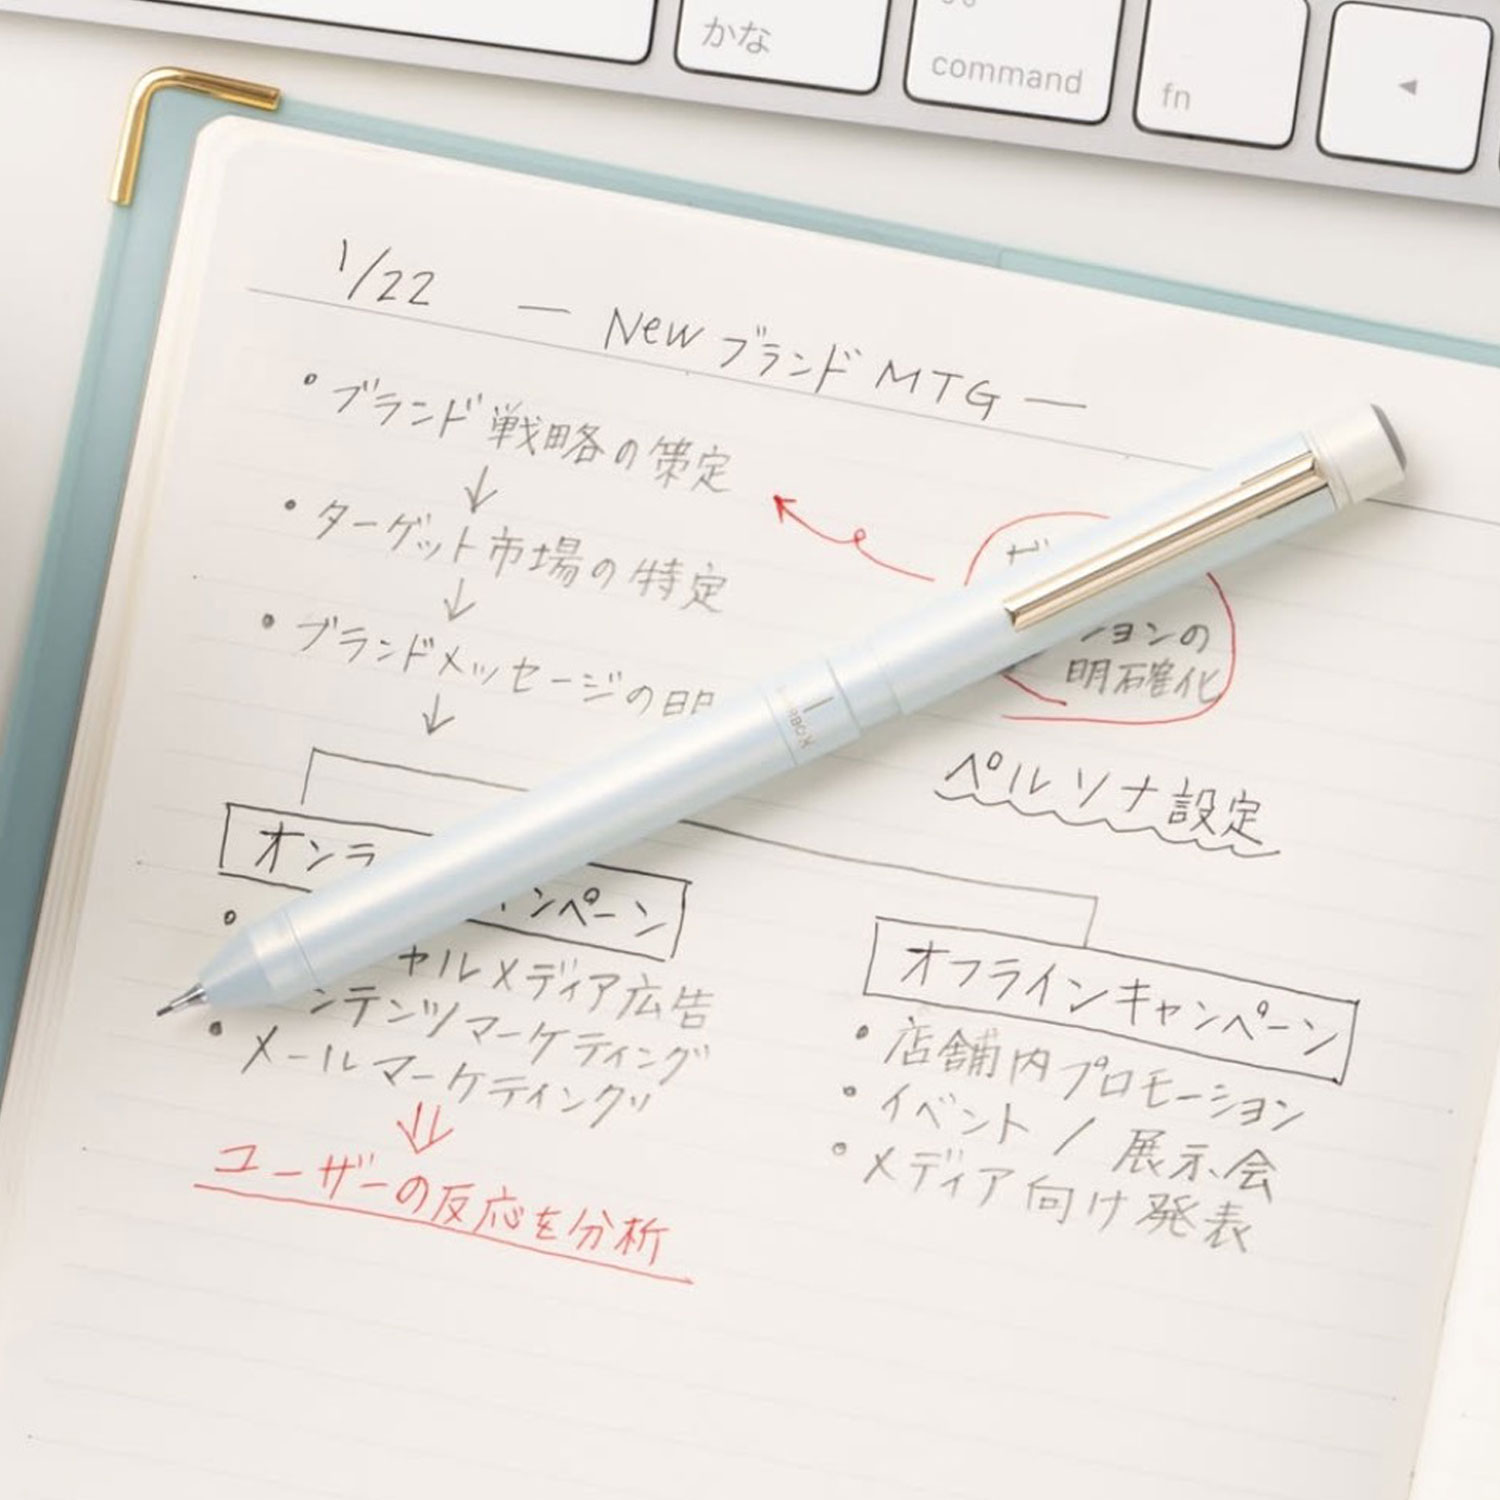 かな
command
fn
1/22 — New ブランド MTG —
• ブランド戦略の策定
↓
• ターゲット市場の特定
↓
• ブランドメッセージの
↓
ビ
ションの
明確化
ペルソナ設定
オンラ ンペーン
• ャルメディア広告
ンテンツマーケティング
• メールマーケティング
↓
ユーザーの反応を分析
オフラインキャンペーン
• 店舗内プロモーション
• イベント / 展示会
• メディア向け発表